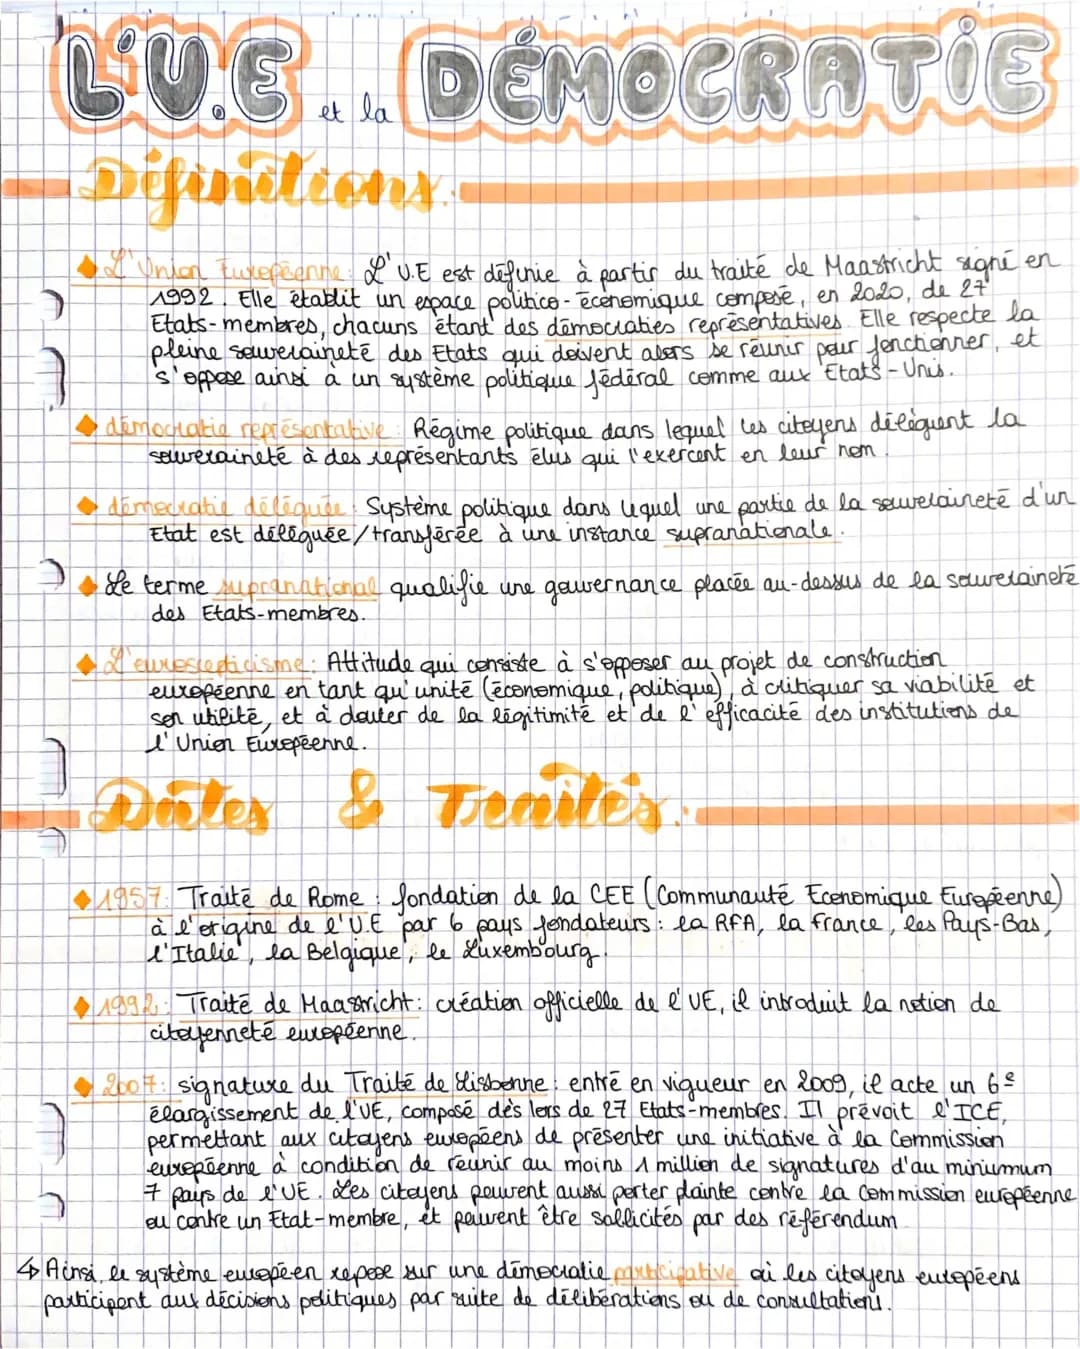 L'U.E et la DÉMOCRATIE
Définitions:
L'Union Européenne: L'U.E est définie à partir du traité de Maastricht signé en
1992. Elle établit un espace politico-économique composé, en 2020, de 27
Etats-membres, chacuns étant des démocraties représentatives. Elle respecte la
pleine souveraineté des Etats qui doivent alors se réunir pour fonctionner, et
s'oppose ainsi à un système politique fédéral comme aux Etats-Unis.
démocratie représentative: Régime politique dans lequel les citoyens délèguent la
souveraineté à des représentants élus qui l'exercent en leur nom.
démocratie déléguée: Système politique dans lequel une partie de la souveraineté d'un
Etat est déléguée/transférée à une instance supranationale.
Le terme supranational qualifie une gouvernance placée au-dessus de la souveraineté
des Etats-membres.
L'euroscepticisme: Attitude qui consiste à s'opposer au projet de construction
européenne en tant qu'unité (économique, politique), à critiquer sa viabilité et
son utilité, et à douter de la légitimité et de l'efficacité des institutions de
l'Union Européenne.
Dates & Traités:
1957: Traité de Rome: fondation de la CEE (Communauté Economique Européenne)
à l'origine de l'U.E par 6 pays fondateurs: la RFA, la France, les Pays-Bas,
l'Italie, la Belgique, le Luxembourg.
1992: Traité de Maastricht: création officielle de l'UE, il introduit la notion de
citoyenneté européenne.
2007: signature du Traité de Lisbonne: entré en vigueur en 2009, il acte un 6e
élargissement de l'UE, composé dès lors de 27 Etats-membres. Il prévoit l'ICE,
permettant aux citoyens européens de présenter une initiative à la Commission
européenne à condition de réunir au moins 1 million de signatures d'au miniumum
7 pays de l'UE. Les citoyens peuvent aussi porter plainte contre la Commission européenne
ou contre un Etat-membre, et peuvent être sollicités par des référendum
↳ Ainsi, le système européen repose sur une démocratie participative où les citoyens européens
participent aux décisions politiques par suite de délibérations ou de consultations.